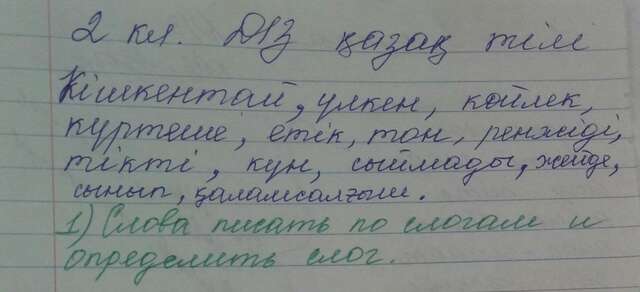 2 кл. ДІЗ қазақ тілі
Кішкентай, үлкен, көйлек,
күртеше, етік, тон, ренжіді,
тікті, күн, сыймады, жейде,
сынып, қаламсалғыш.
1) Слова писать по слогам и
определить слог.